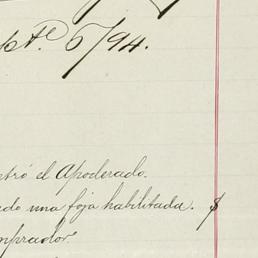 pte 6/94.
tró el Apoderado.
ado una foja habilitada. $
mprador